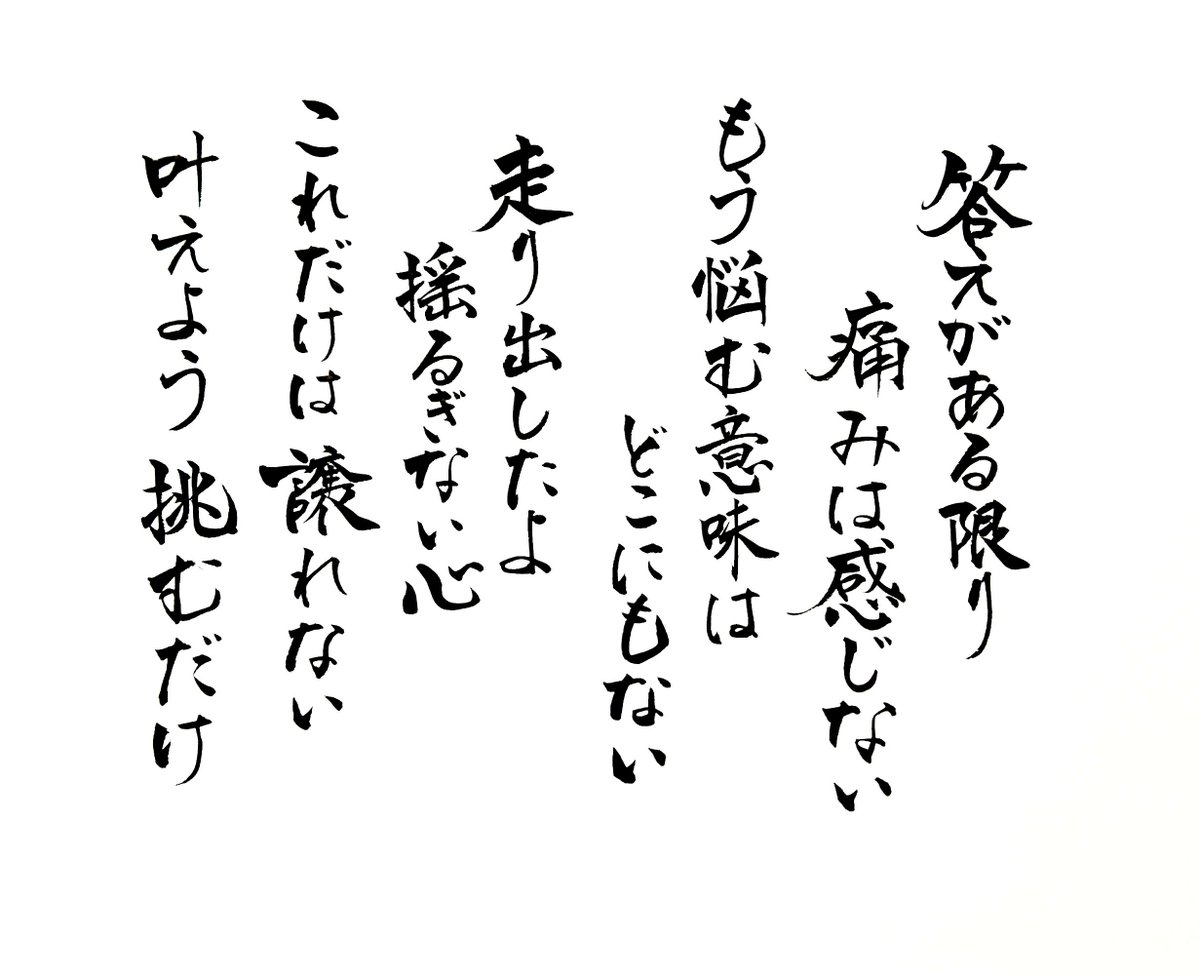 答えがある限り
痛みは感じない
もう悩む意味は
どこにもない
走り出したよ
揺るぎない心
これだけは譲れない
叶えよう 挑むだけ